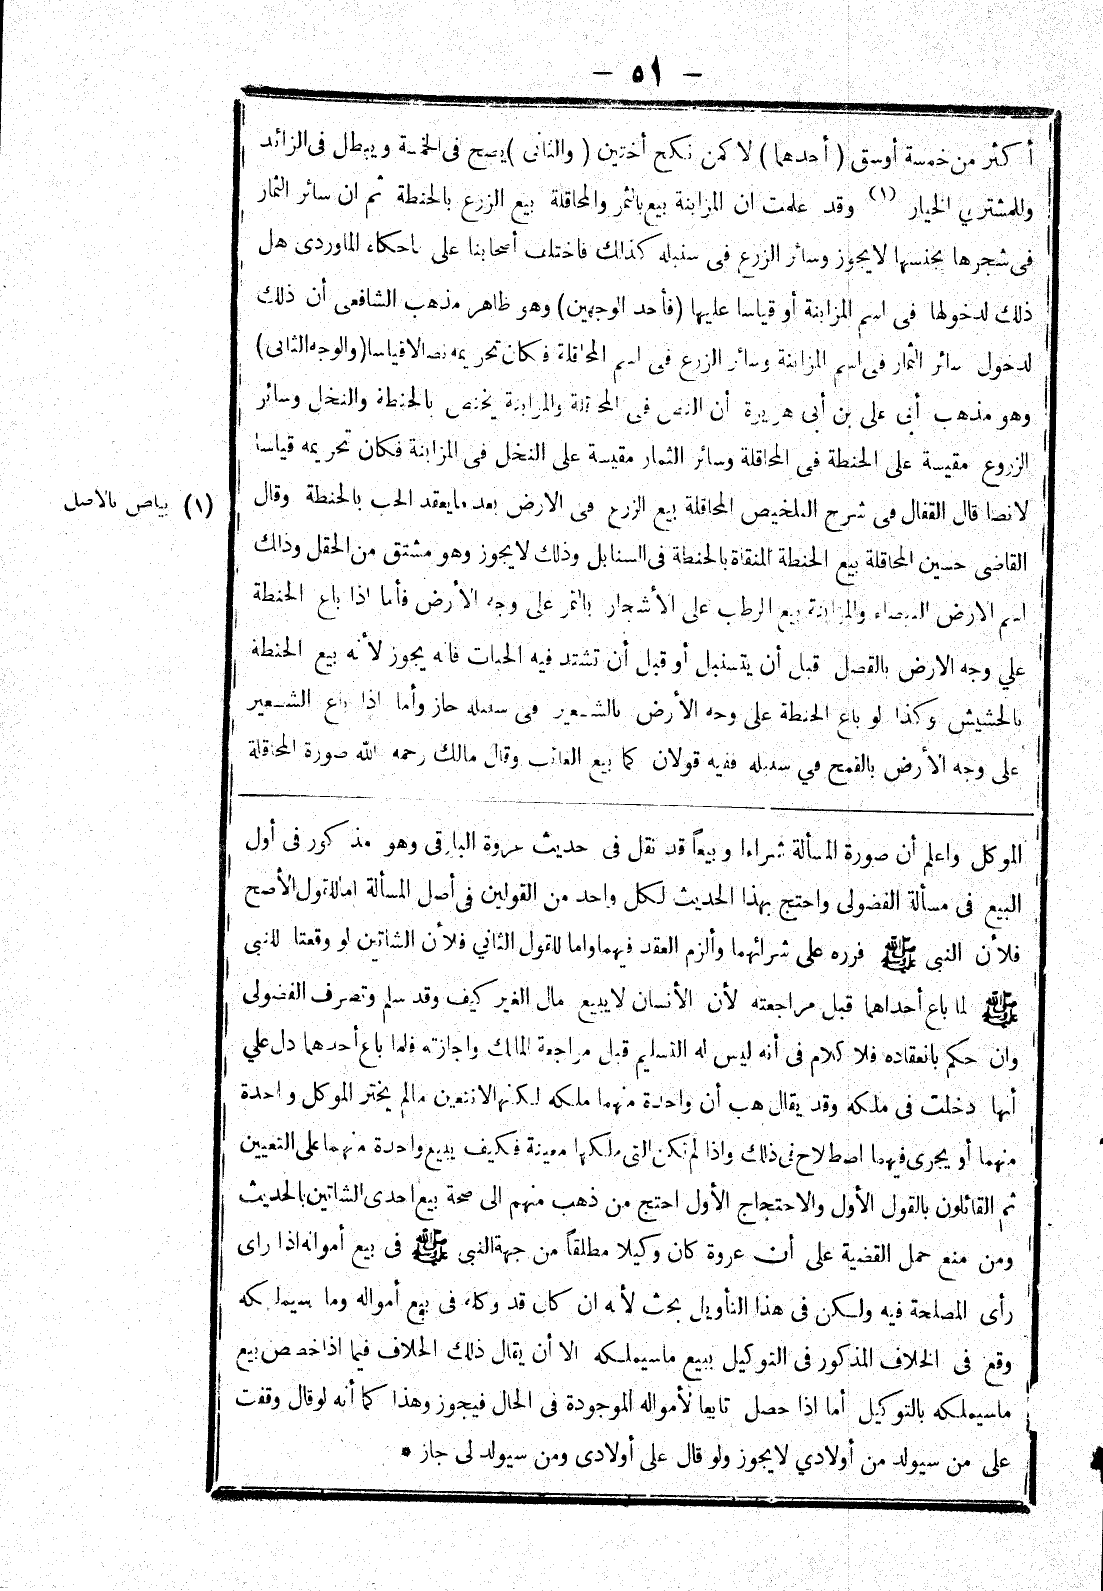 — ٥١ —
أكثر من خمسة أوسق ( أحدهما ) لا كمن نكح أختين ( والثانى ) يصح فى الخمسة ويبطل فى الزائد
وللمشتري الخيار (١) وقد علمت ان المزابنة بيع بالثمر والمحاقلة بيع الزرع بالحنطة ثم ان سائر الثمار
فى شجرها بجنسها لا يجوز وسائر الزرع فى سنبله كذلك فاختلف أصحابنا على ماحكاه الماوردى هل
ذلك لدخولها فى اسم المزابنة أو قياسا عليها (فأحد الوجهين) وهو ظاهر مذهب الشافعى أن ذلك
لدخول سائر الثمار فى اسم المزابنة وسائر الزرع فى اسم المحاقلة فكان تحريمه نصا لا قياسا (والوجه الثانى)
وهو مذهب أبى على بن أبى هريرة أن النص فى المحاقلة والمزابنة يختص بالحنطة والنخل وسائر
الزروع مقيسة على الحنطة فى المحاقلة وسائر الثمار مقيسة على النخل فى المزابنة فكان تحريمه قياسا
لا نصا قال القفال فى شرح التلخيص المحاقلة بيع الزرع فى الارض بعد ما يعقد الحب بالحنطة وقال
(١) بياض بالاصل
القاضى حسين المحاقلة بيع الحنطة المنقاة بالحنطة فى السنابل وذلك لا يجوز وهو مشتق من الحقل وذلك
اسم الارض البيضاء والمزابنة بيع الرطب على الأشجار بالتمر على وجه الأرض فأما اذا باع الحنطة
علي وجه الارض بالقصل قبل أن يتسنبل أو قبل أن تشتد فيه الحبات فانه يجوز لأنه بيع الحنطة
بالحشيش وكذا لو باع الحنطة على وجه الأرض بالشعير فى سنبله جاز وأما اذا باع الشعير
على وجه الأرض بالقمح في سنبله ففيه قولان كما بيع الغائب وقال مالك رحمه الله صورة المحاقلة
الموكل واعلم أن صورة المسألة شراءا وبيعاً قد نقل فى حديث عروة البارقى وهو مذكور فى أول
البيع فى مسألة الفضولى واحتج بهذا الحديث لكل واحد من القولين فى أصل المسألة اما للقول الأصح
فلأن النبى ﷺ قرره على شرائهما وألزم العقد فيهما واما للقول الثاني فلأن الشاتين لو وقعتا للنبى
ﷺ لما باع أحداهما قبل مراجعته لأن الأنسان لا يبيع مال الغير كيف وقد سلم وتصرف الفضولى
وان حكم بانعقاده فلا كلام فى أنه ليس له التسليم قبل مراجعة المالك واجازته فلما باع أحدهما دل علي
أنها دخلت فى ملكه وقد يقال هب أن واحدة منهما ملكه لكنها لا تتعين مالم يختر الموكل واحدة
منهما أو يجرى فيهما اصطلاح فى ذلك واذا لم تكن التى ملكها معينة فكيف يبيع واحدة منهما على التعيين
ثم القائلون بالقول الأول والاحتجاج الأول احتج من ذهب منهم الى صحة بيع احدى الشاتين بالحديث
ومن منع حمل القضية على أن عروة كان وكيلا مطلقاً من جهة النبى ﷺ فى بيع أمواله اذا راى
رأى المصلحة فيه ولكن فى هذا التأويل بحث لأنه ان كان قد وكله فى بيع أمواله وما سيملكه
وقع فى الخلاف المذكور فى التوكيل ببيع ماسيملكه الا أن يقال ذلك الخلاف فيما اذا خصص بيع
ماسيملكه بالتوكيل أما اذا حصل تابعا لأمواله الموجودة فى الحال فيجوز وهذا كما أنه لو قال وقفت
على من سيولد من أولادي لا يجوز ولو قال على أولادى ومن سيولد لى جاز *